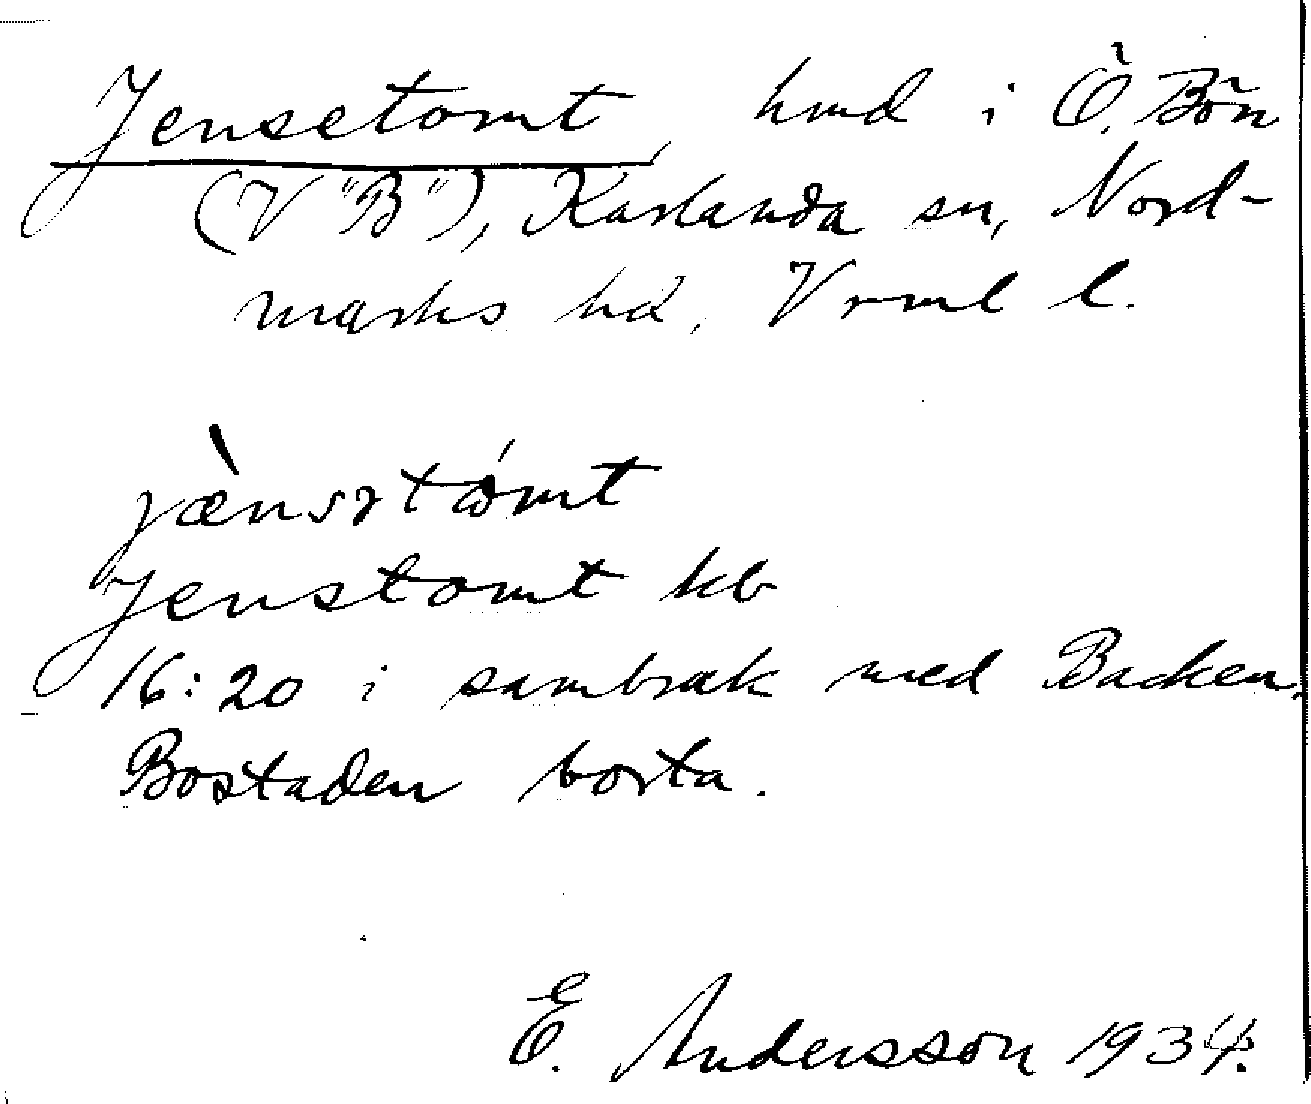 Jensetomt, hmd i Ö. Bön
(V "B"), Karlanda sn, Nord-
marks hd, Vrml l.
jæ̀nsətómt
Jenstomt kb
16:20 i sambruk med Backen.
Bostaden borta.
E. Andersson 1934.